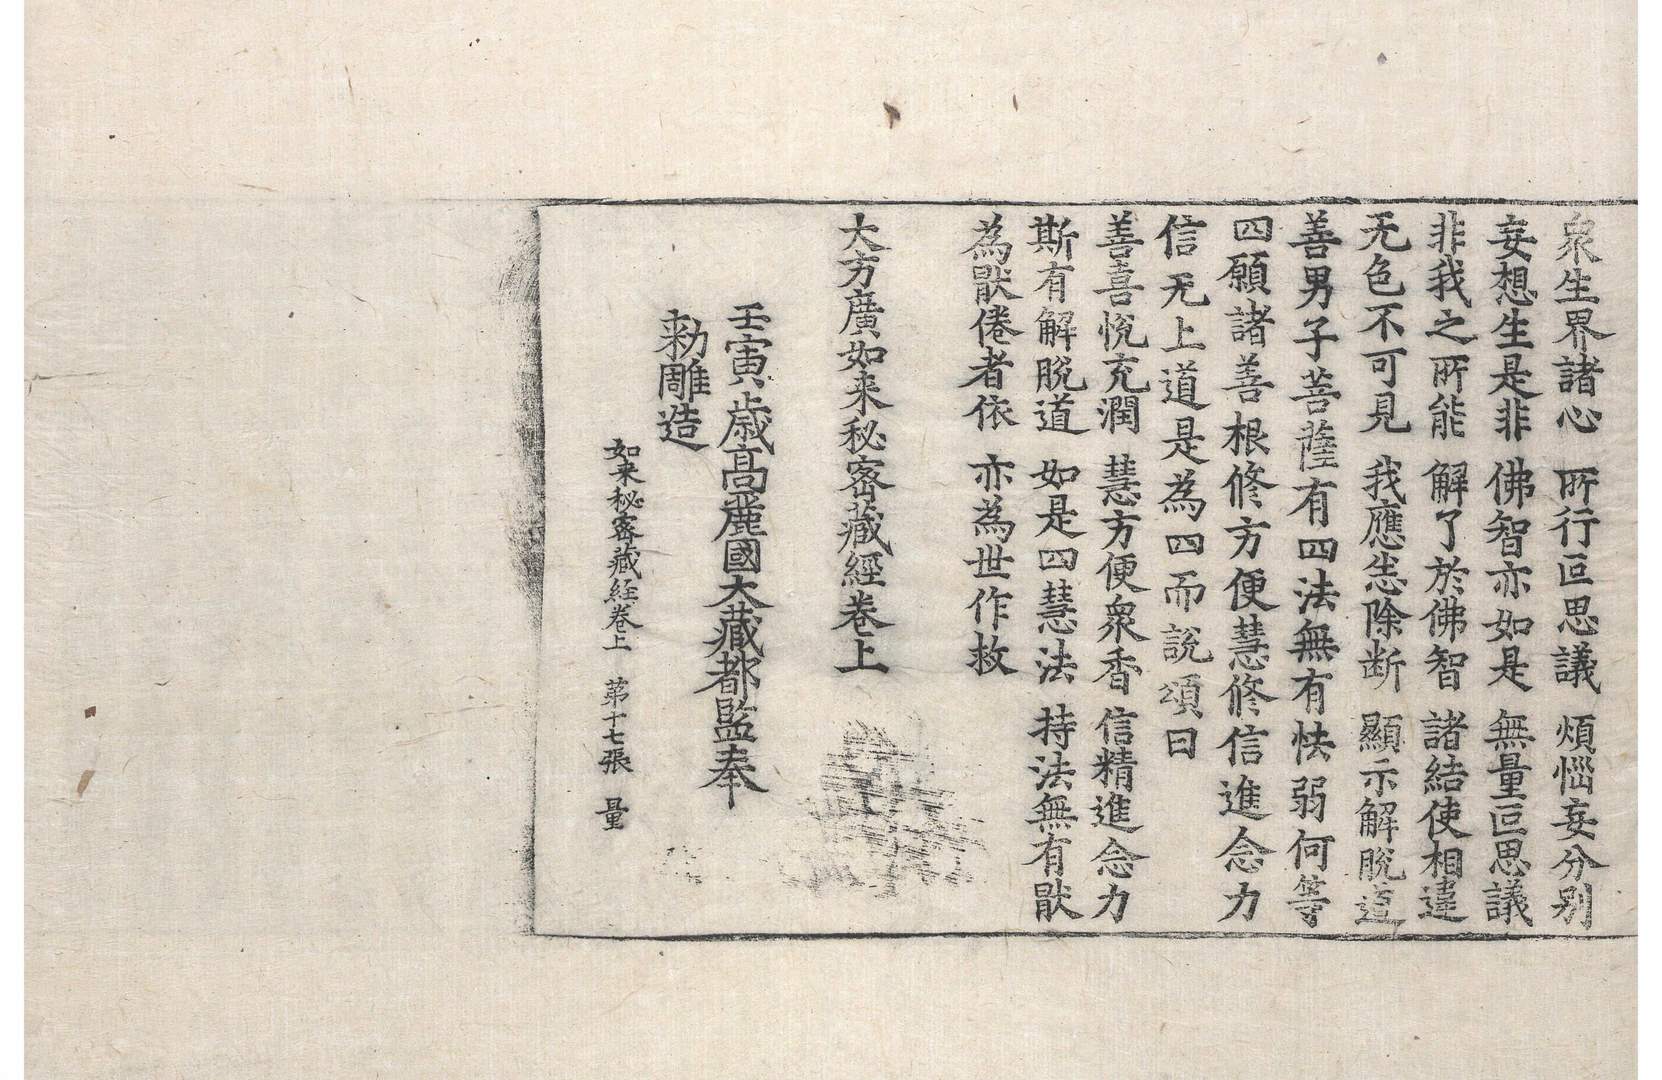 衆生界諸心　所行叵思議　煩惱妄分别
妄想生是非　佛智亦如是　無量叵思議
非我之所能　解了於佛智　諸結使相違
无色不可見　我應悉除断　顯示解脫道
善男子菩薩有四法無有怯弱何等
四願諸善根修方便慧修信進念力
信无上道是為四而說頌曰
善喜悅充潤　慧方便衆香　信精進念力
斯有解脫道　如是四慧法　持法無有猒
為猒倦者依　亦為世作救
大方廣如来秘密藏經卷上
壬寅歲高麗國大藏都監奉
勑雕造
如来秘密藏経卷上　第十七張　量